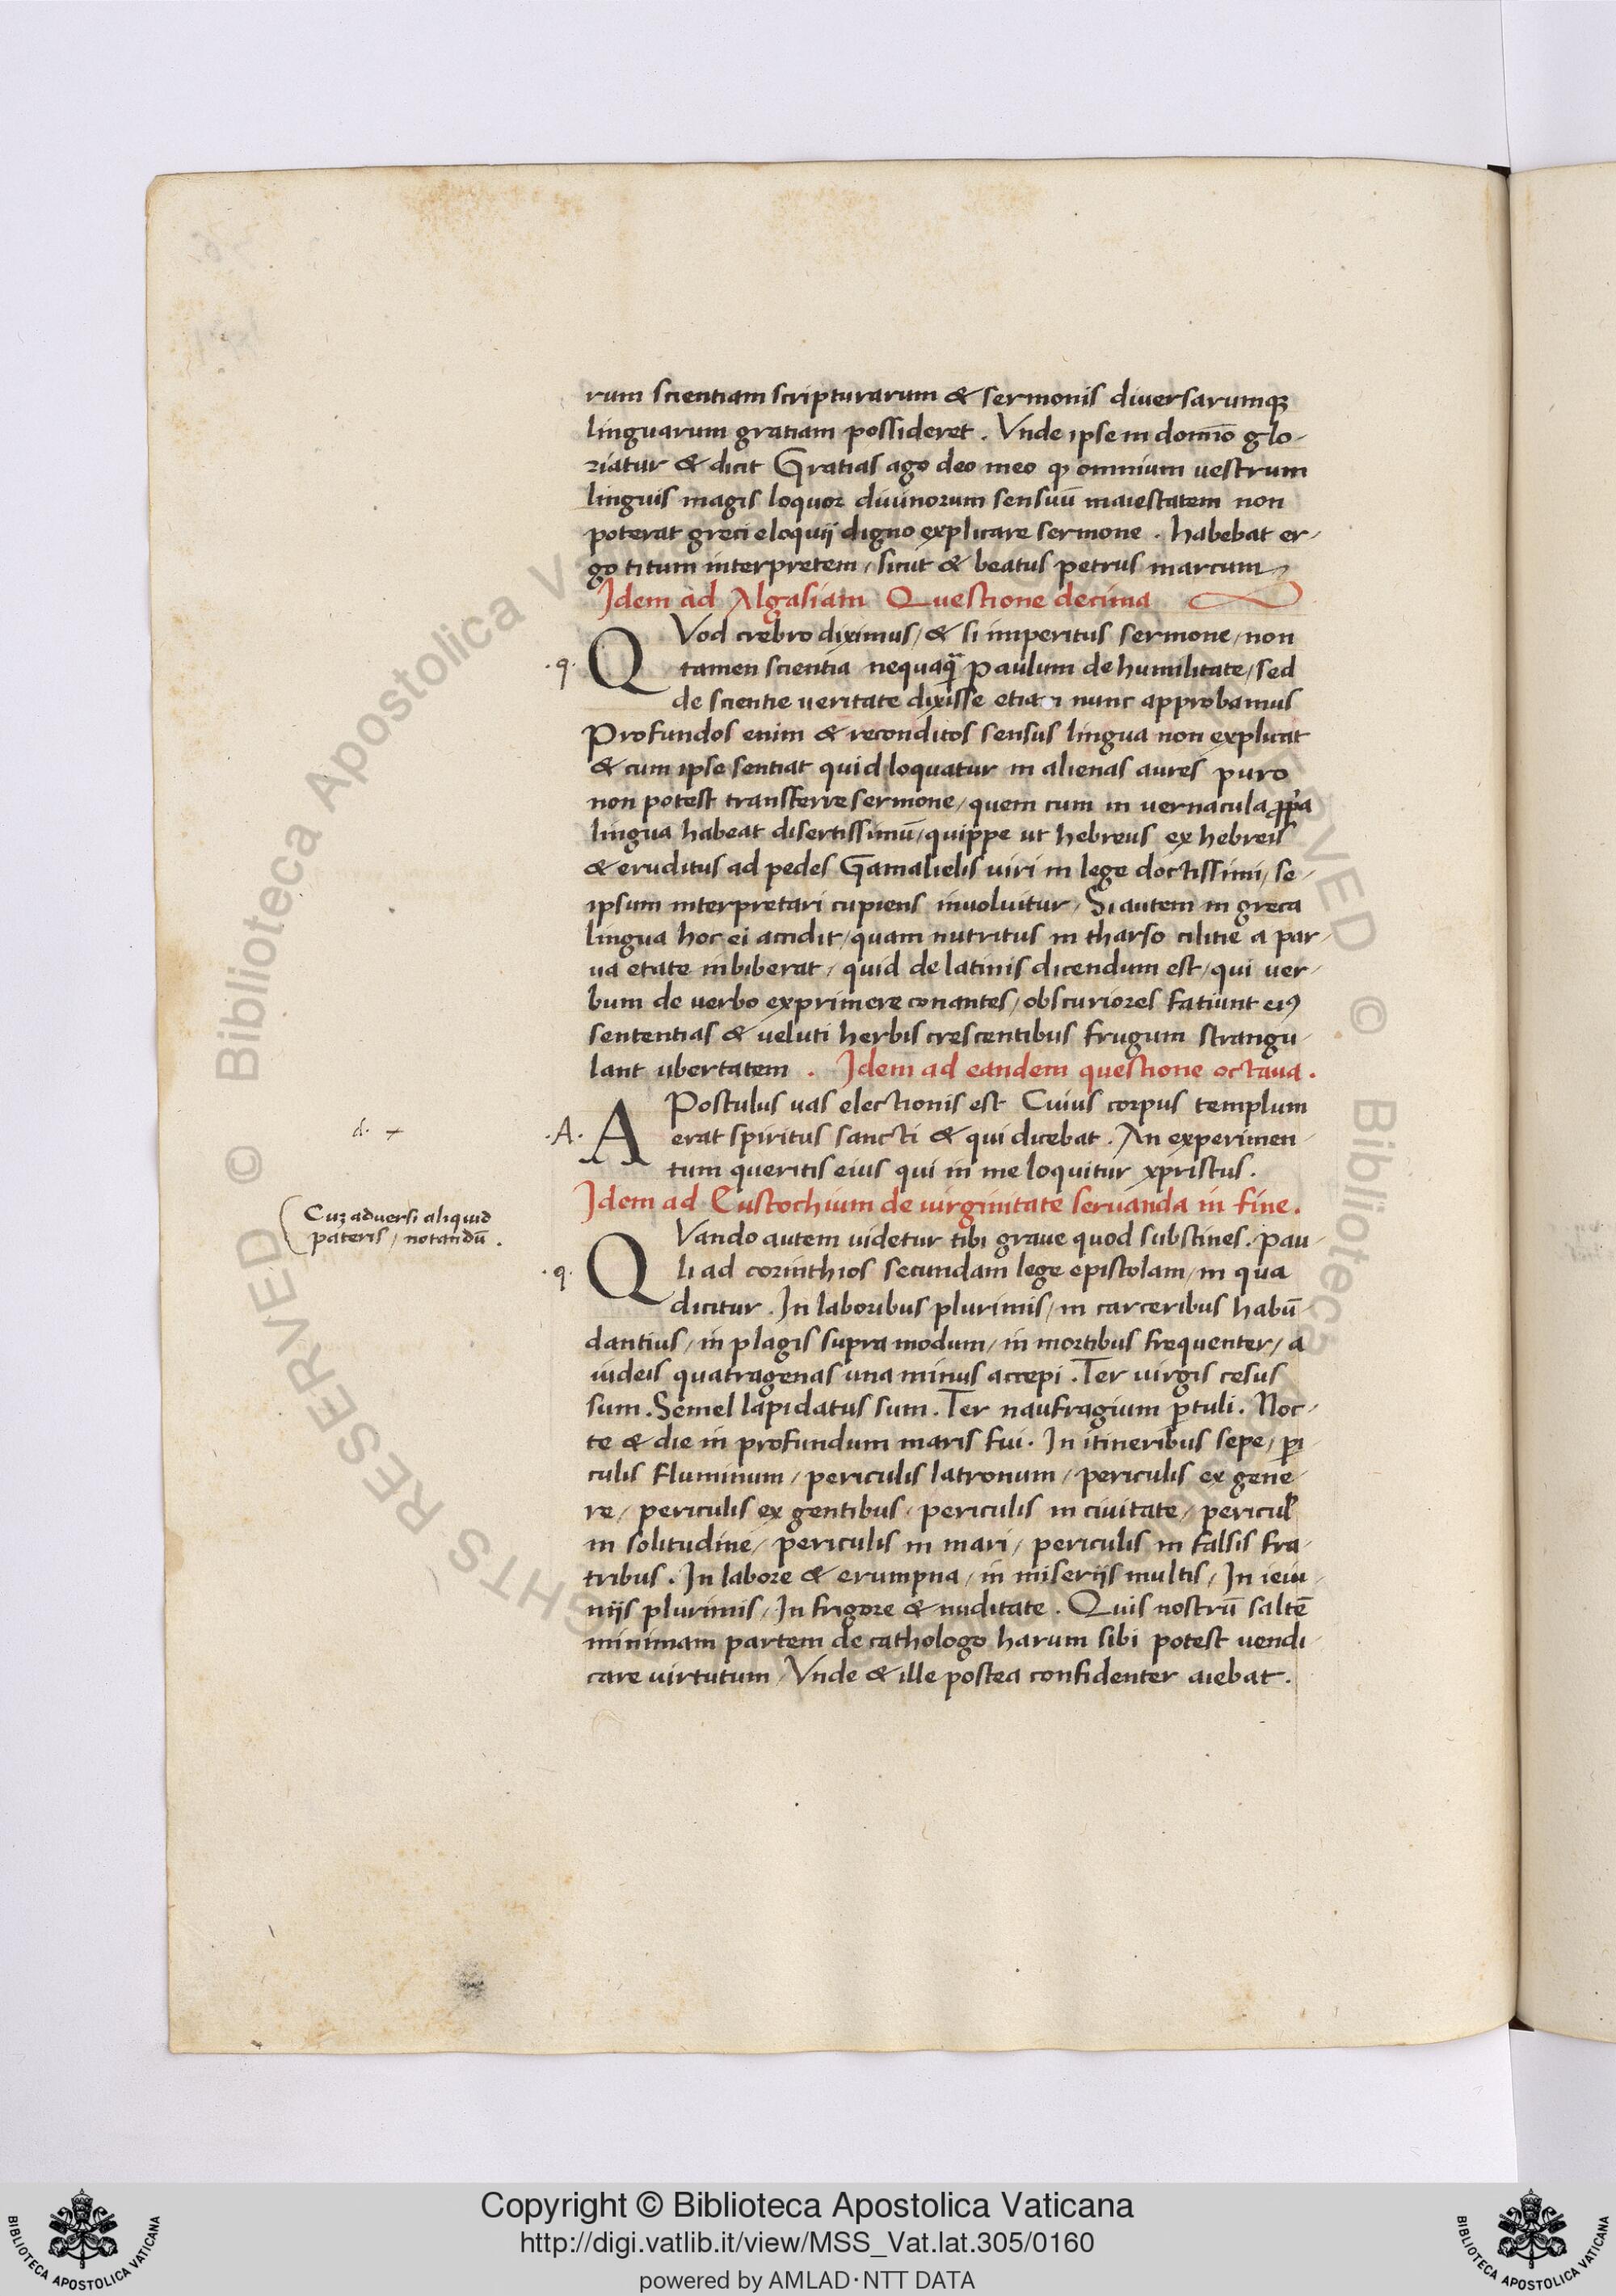 rum scientiam scripturarum & sermonis diversarumqꝫ
linguarum gratiam possideret . Vnde ipse in domīo glo-
riatur & dicit Gratias ago deo meo ꝙ omnium uestrum
linguis magis loquor divinorum sensuū maiestatem non
poterat greci eloquij digno explicare sermone . habebat er-
go titum interpretem / sicut & beatus petrus marcum
Idem ad Algasiam Questione decima
QVod crebro diximus / & si imperitus sermone / non
.q.
tamen scientia nequaq̃ paulum de humilitate / sed
de scientie ueritate dixisse etiam nunc approbamus
Profundos enim & reconditos sensus lingua non explicat
& cum ipse sentiat quid loquatur in alienas aures puro
non potest transferre sermone / quem cum in uernacula ꝓp̃a
lingua habeat disertissimū / quippe ut hebreus ex hebreis
& eruditus ad pedes Gamalielis uiri in lege doctissimi / se-
ipsum interpretari cupiens involuitur / Si autem in greca
lingua hoc ei accidit / quam nutritus in tharso cilitie a par-
ua etate inbiberat / quid de latinis dicendum est / qui uer-
bum de uerbo exprimere conantes / obscuriores fatiunt eiꝰ
sententias & ueluti herbis crescentibus frugum strangu-
lant ubertatem . Idem ad eandem questione octaua .
APostulus uas electionis est Cuius corpus templum
d. +
.A.
erat spiritus sancti & qui dicebat . An experimen-
tum queritis eius qui in me loquitur xpristus .
Idem ad Eustochium de uirginitate seruanda in fine .
Cuꝫ adversi aliquid
pateris / notandū .
QVando autem uidetur tibi graue quod substines . pau-
.q.
li ad corinthios secundam lege epistolam / in qua
dicitur . In laboribus plurimis / in carceribus habū-
dantius / in plagis supra modum / in mortibus frequenter / a
iudeis quatragenas una minus accepi . Ter uirgis cesus
sum . Semel lapidatus sum . Ter naufragium ꝑtuli . Noc-
te & die in profundum maris fui . In itineribus sepe / ꝑi-
culis fluminum / periculis latronum / periculis ex gene-
re / periculis ex gentibus / periculis in ciuitate / pericul̃
in solitudine / periculis in mari / periculis in falsis fra-
tribus . In labore & erumpna / in miserijs multis / In ieiu-
nijs plurimis / In frigore & nuditate . Quis nostrū saltē
minimam partem de cathologo harum sibi potest uendi-
care virtutum / Vnde & ille postea confidenter aiebat .
© Biblioteca Apostolica Vaticana
RIGHTS RESERVED
Copyright © Biblioteca Apostolica Vaticana
http://digi.vatlib.it/view/MSS_Vat.lat.305/0160
powered by AMLAD·NTT DATA
BIBLIOTECA APOSTOLICA VATICANA
BIBLIOTECA APOSTOLICA VATICANA